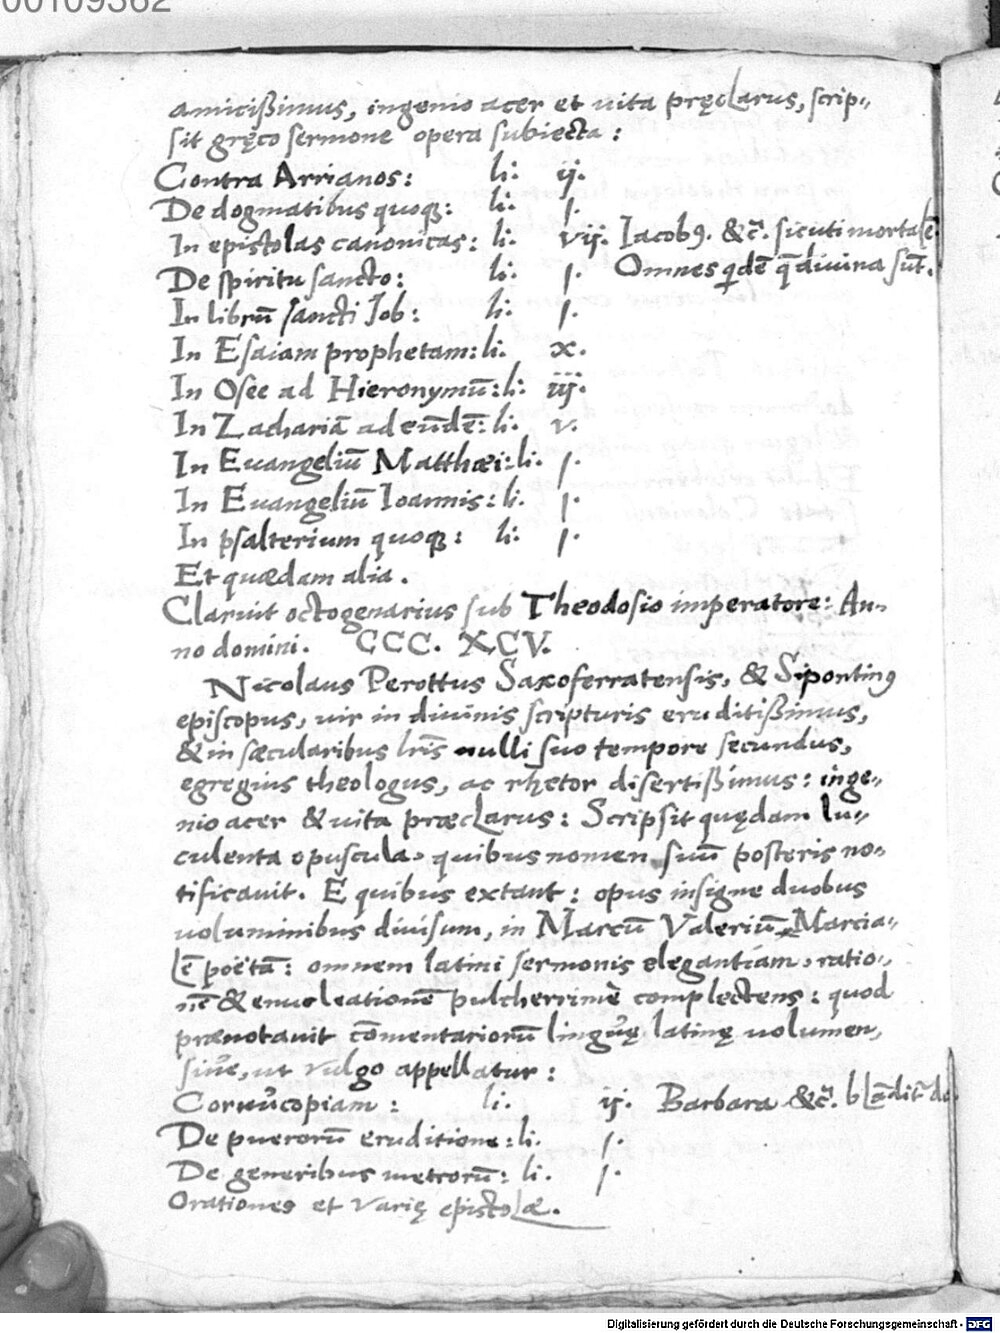 00109362
amicißimus, ingenio acer et vita pręclarus, scrip-
sit gręco sermone opera subiecta:
Contra Arrianos: li: ij.
De dogmatibus quoq: li: j.
In epistolas canonicas: li: vij. Iacobꝯ. &c̃. sicuti mortalẽ
De spiritu sancto: li: j. Omnes qdẽ q̃ divina sũt.
In librũ sancti Job: li: j.
In Esaiam prophetam: li. x.
In Osee ad Hieronymũ: li: iij.
In Zachariã ad eũdẽ: li: v.
In Euangeliũ Matthæi: li. j.
In Euangeliũ Ioannis: li. j.
In psalterium quoq: li: j.
Et quædam alia.
Claruit octogenarius sub Theodosio imperatore: An-
no domini. CCC. XCV.
Nicolaus Perottus Saxoferratensis, & Sipontinꝯ
episcopus, uir in diuinis scripturis eruditißimus,
& in sæcularibus lr̃is nulli suo tempore secundus,
egregius theologus, ac rhętor disertißimus: inge-
nio acer & uita præclarus: Scripsit quędam lu-
culenta opuscula, quibus nomen suũ posteris no-
tificauit. E quibus extant: opus insigne duobus
uoluminibus diuisum, in Marcũ Valeriũ Marcia-
lẽ poëtã: omnem latini sermonis elegantiam, ratio-
nẽ & enucleationẽ pulcherrimè complectens: quod
prænotauit cõmentariorũ linguę latinę uolumen,
siue, ut vulgo appellatur:
Cornucopiam: li. ij. Barbara &c̃.
De puerorũ eruditione: li. j.
De generibus metrorũ: li. j.
Orationes et varię epistolæ.
Digitalisierung gefördert durch die Deutsche Forschungsgemeinschaft - DFG